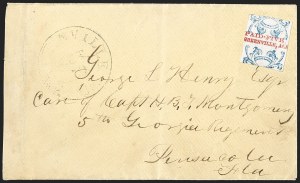 NVILLE
PAID FIVE
GREENVILLE, ALA
George L Henry Esqr
Care of Capt H. B. Montgomery
5th Georgia Regiment
Pensacola
Fla